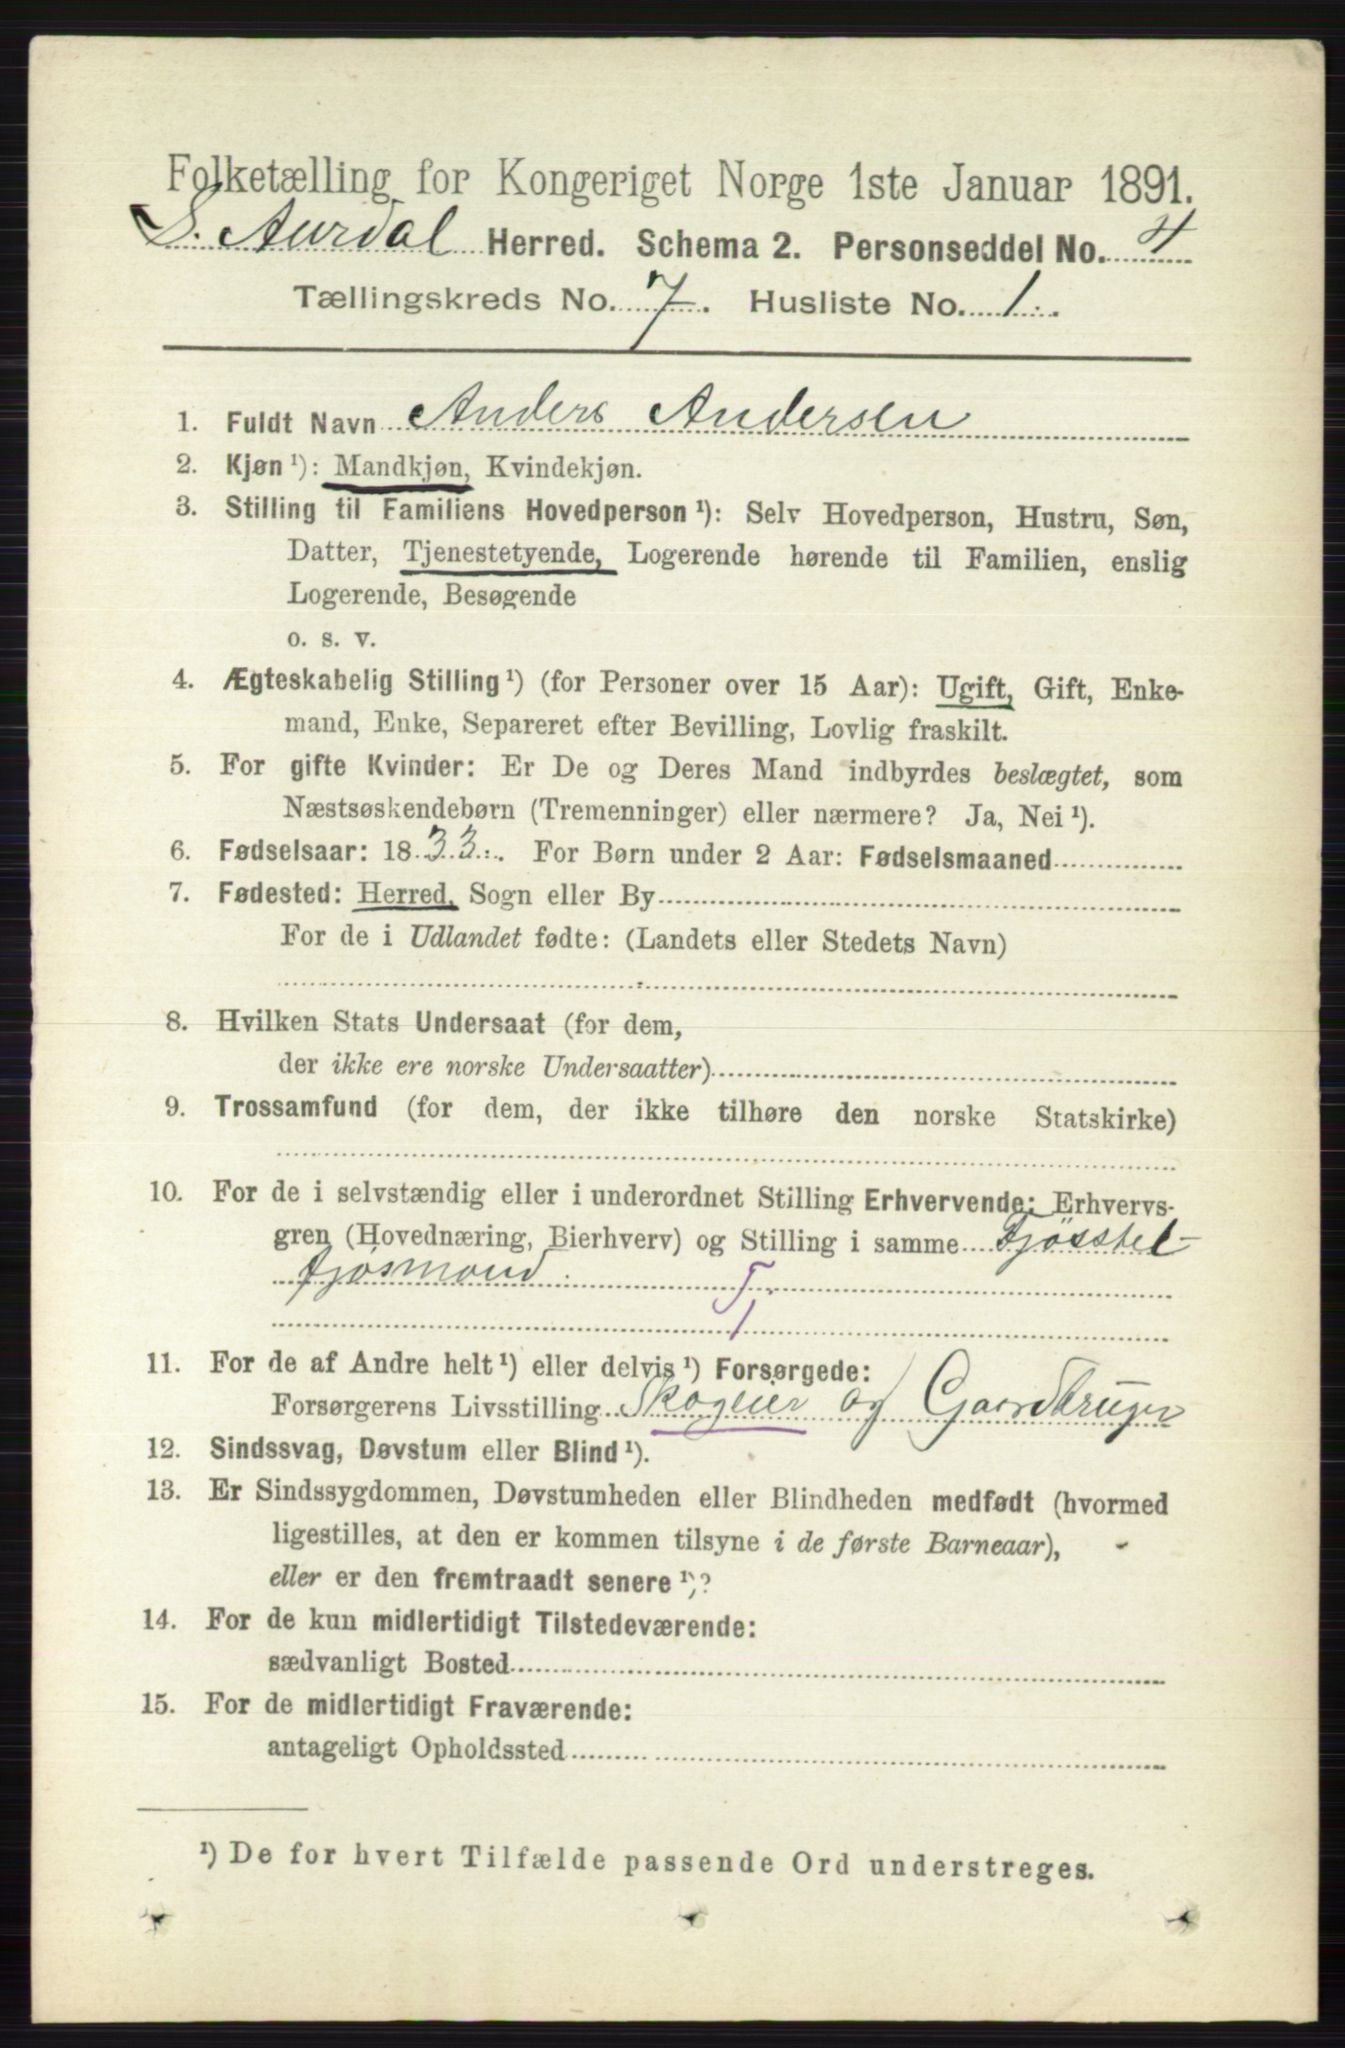 Folketælling for Kongeriget Norge 1ste Januar 1891.
S. Aurdal Herred. Schema 2. Personseddel No. 4
Tællingskreds No. 7. Husliste No. 1.
1. Fuldt Navn Anders Andersen
2. Kjøn ¹): Mandkjøn, Kvindekjøn.
3. Stilling til Familiens Hovedperson ¹): Selv Hovedperson, Hustru, Søn,
Datter, Tjenestetyende, Logerende hørende til Familien, enslig
Logerende, Besøgende
o. s. v.
4. Ægteskabelig Stilling ¹) (for Personer over 15 Aar): Ugift, Gift, Enke-
mand, Enke, Separeret efter Bevilling, Lovlig fraskilt.
5. For gifte Kvinder: Er De og Deres Mand indbyrdes beslægtet, som
Næstsøskendebørn (Tremenninger) eller nærmere? Ja, Nei ¹).
6. Fødselsaar: 1833. For Børn under 2 Aar: Fødselsmaaned
7. Fødested: Herred, Sogn eller By
For de i Udlandet fødte: (Landets eller Stedets Navn)
8. Hvilken Stats Undersaat (for dem,
der ikke ere norske Undersaatter)
9. Trossamfund (for dem, der ikke tilhøre den norske Statskirke)
10. For de i selvstændig eller i underordnet Stilling Erhvervende: Erhvervs-
gren (Hovednæring, Bierhverv) og Stilling i samme Fjösstel-
fjösmand. T.
1
11. For de af Andre helt ¹) eller delvis ¹) Forsørgede:
Forsørgerens Livsstilling Skogeier og Gaardbruger
12. Sindssvag, Døvstum eller Blind ¹).
13. Er Sindssygdommen, Døvstumheden eller Blindheden medfødt (hvormed
ligestilles, at den er kommen tilsyne i de første Barneaar),
eller er den fremtraadt senere ¹)?
14. For de kun midlertidigt Tilstedeværende:
sædvanligt Bosted
15. For de midlertidigt Fraværende:
antageligt Opholdssted
¹) De for hvert Tilfælde passende Ord understreges.